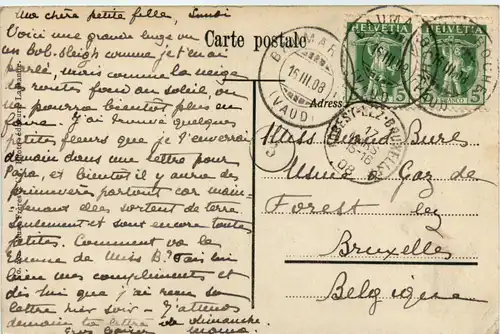 Ma chère petite fille, Lundi
Voici une grande luge ou
un bob-sleigh comme je t'en ai
parlé, mais comme la neige
des routes fond au soleil, on
ne pourra bientôt plus en
faire. J'ai trouvé quelques
petites fleurs que je t'enverrai
demain dans une lettre pour
Papa, et bientôt il y aura des
primevères partout car main-
tenant elles sortent de terre
seulement et sont encore toutes
petites. Comment va le
de Miss B.? Fais lui
bien mes compliments et
dis lui que j'ai reçu sa
lettre hier soir - J'attends
demain ta lettre de dimanche.
Gros baiser Mama.
Carte postale
Adresse
HELVETIA
5
HELVETIA
5
BAUMAR
15.III.08
(VAUD)
17
08
Miss Burls
Usine à Gaz de
Forest lez
Bruxelles
Belgique